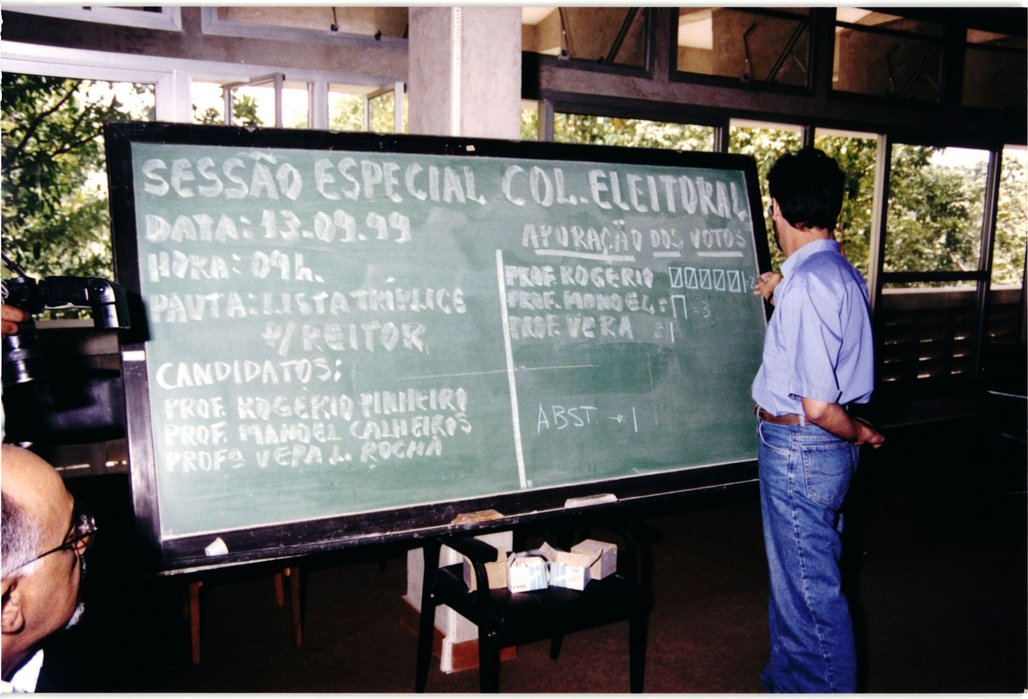 SESSÃO ESPECIAL COL. ELEITORAL
DATA: 13.09.99
HORA: 09h.
PAUTA: LISTA TRÍPLICE
P/REITOR
CANDIDATOS:
PROF. ROGERIO PINHEIRO
PROF. MANOEL CALHEIROS
PROFª VERA L. ROCHA
APURAÇÃO DOS VOTOS
PROF. ROGERIO
PROF. MANOEL: = 3
PROF. VERA = 1
ABST. → 1